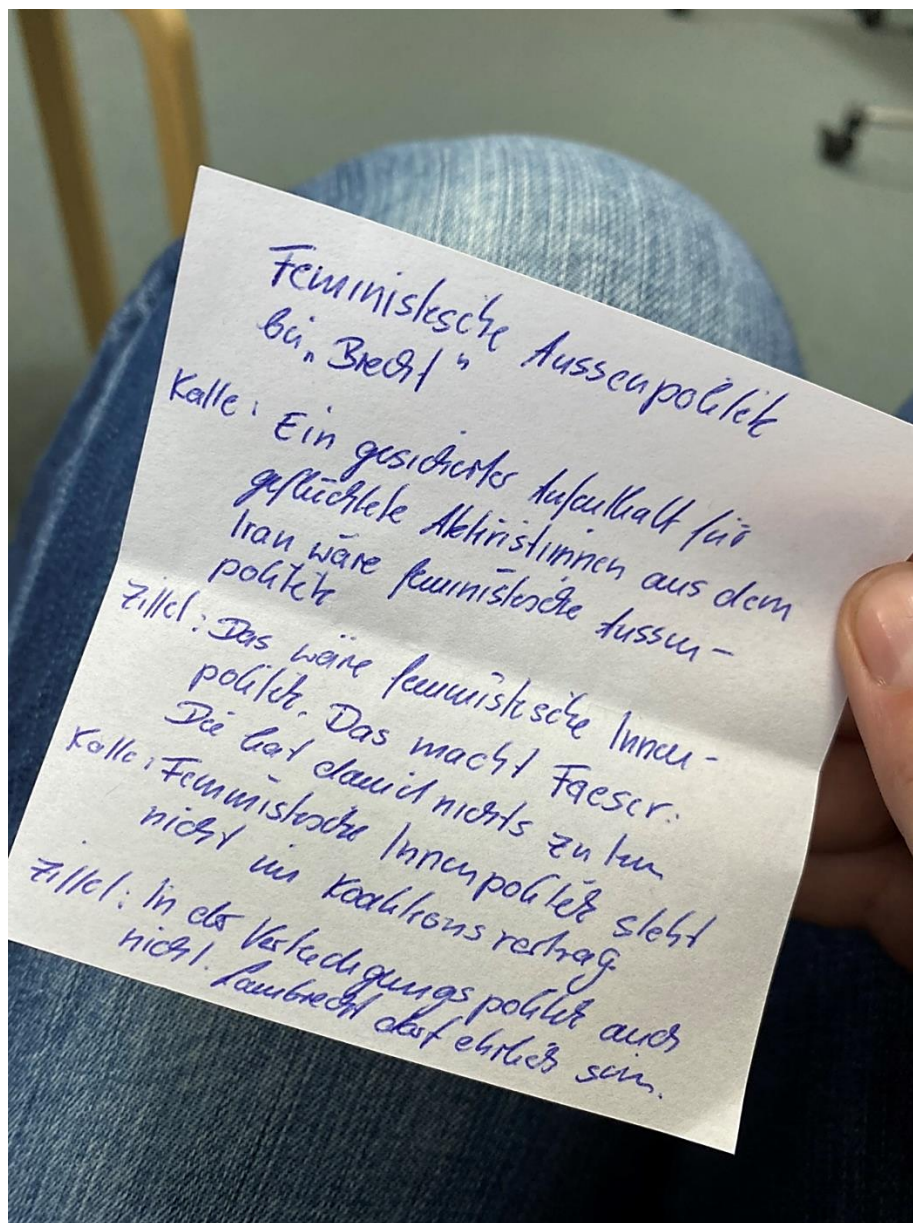 Feministische Aussenpolitik
bei „Brecht“
Kalle: Ein gesicherter Aufenthalt für
geflüchtete Aktivistinnen aus dem
Iran wäre feministische Aussen-
politik
Ziffel: Das wäre feministische Innen-
politik. Das macht Faeser.
Die hat damit nichts zu tun
Kalle: Feministische Innenpolitik steht
nicht im Koalitionsvertrag
Ziffel: In der Verteidigungspolitik auch
nicht. Lambrecht darf ehrlich sein.